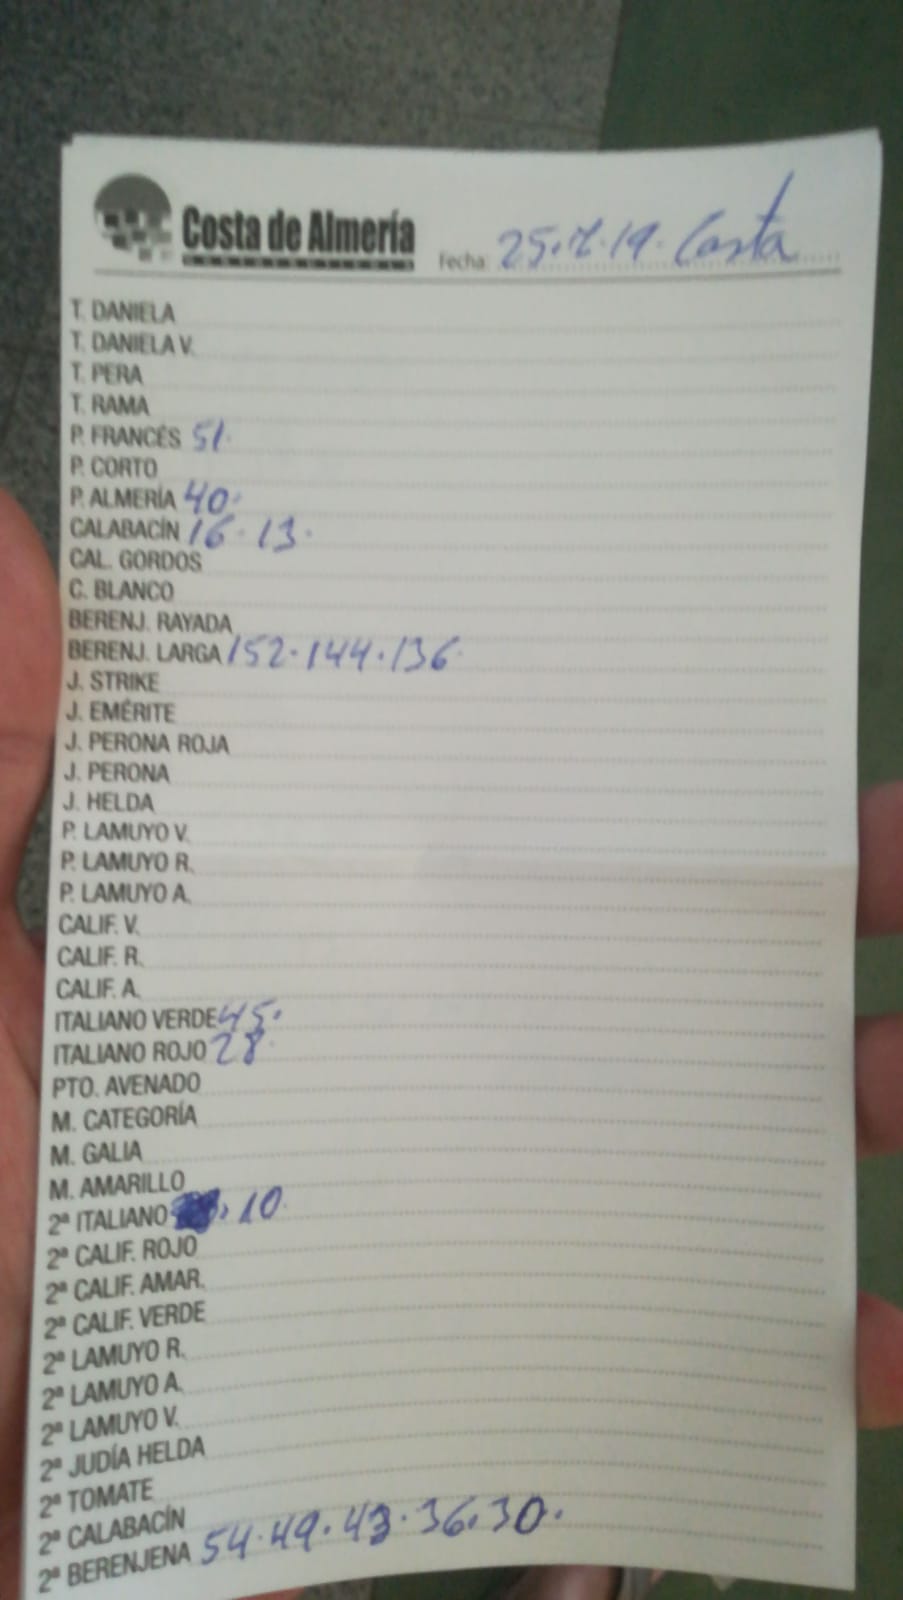 Costa de Almería
Fecha: 25.7.19. Costa
T. DANIELA
T. DANIELA V.
T. PERA
T. RAMA
P. FRANCÉS 51.
P. CORTO
P. ALMERÍA 40.
CALABACÍN 16. 13.
CAL. GORDOS
C. BLANCO
BERENJ. RAYADA
BERENJ. LARGA 152.144.136
J. STRIKE
J. EMÉRITE
J. PERONA ROJA
J. PERONA
J. HELDA
P. LAMUYO V.
P. LAMUYO R.
P. LAMUYO A.
CALIF. V.
CALIF. R.
CALIF. A.
ITALIANO VERDE 45.
ITALIANO ROJO 28.
PTO. AVENADO
M. CATEGORÍA
M. GALIA
M. AMARILLO
2ª ITALIANO . 10.
2ª CALIF. ROJO
2ª CALIF. AMAR.
2ª CALIF. VERDE
2ª LAMUYO R.
2ª LAMUYO A.
2ª LAMUYO V.
2ª JUDÍA HELDA
2ª TOMATE
2ª CALABACÍN
2ª BERENJENA 54.49.43.36.30.